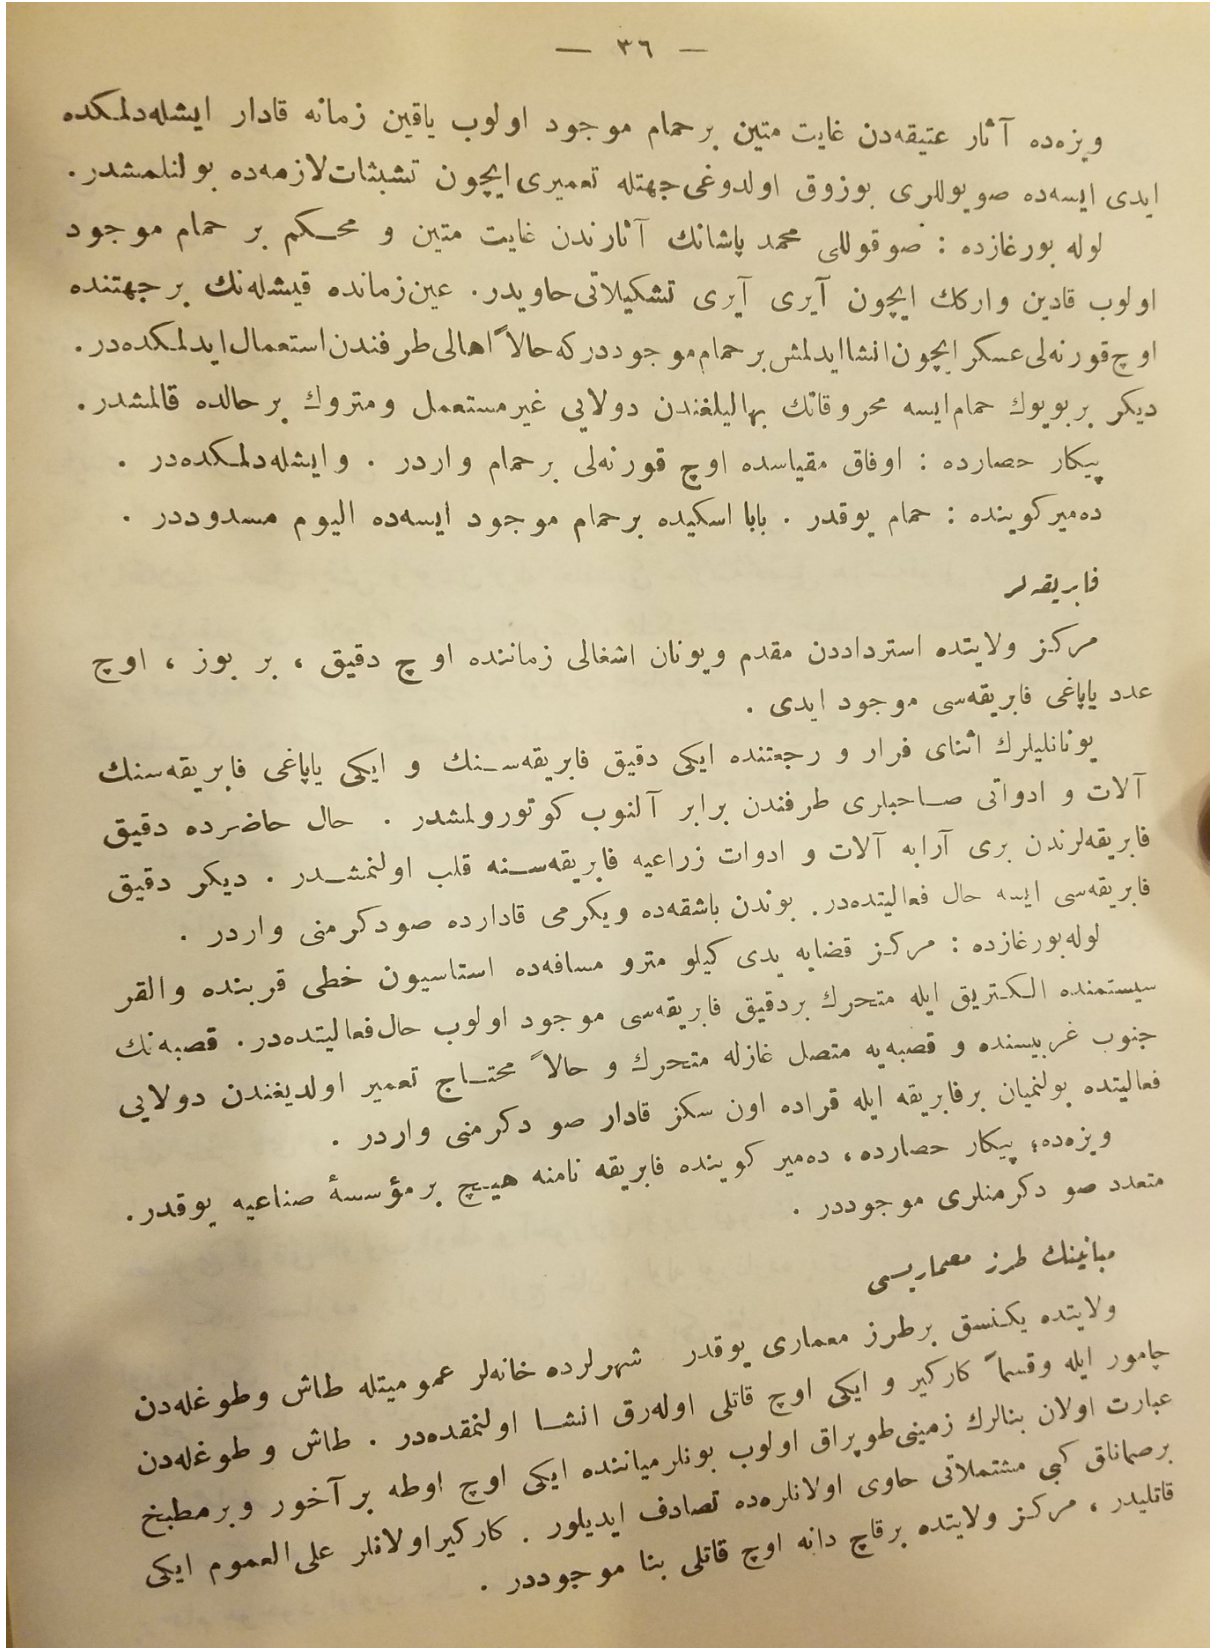 — ٣٦ —
ویزه‌ده آثار عتیقه‌دن غایت متین بر حمام موجود اولوب یاقین زمانه قادار ایشله‌دلمکده
ایدی ایسه‌ده صو یوللری بوزوق اولدوغی جهتله تعمیری ایچون تشبثات لازمه‌ده بولنلمشدر.
لوله بورغازده : صوقوللی محمد پاشانك آثارندن غایت متین و محکم بر حمام موجود
اولوب قادین وارکك ایچون آیری آیری تشکیلاتی حاویدر. عین زمانده قیشله‌نك بر جهتنده
اوچ قورنه‌لی عسکر ایچون انشا ایدلمش بر حمام موجوددر که حالاً اهالی طرفندن استعمال ایدلمکده‌در.
دیکر بر بویوك حمام ایسه محروقاتك بهالیلغندن دولایی غیر مستعمل و متروك بر حالده قالمشدر.
پیکار حصارده : اوفاق مقیاسده اوچ قورنه‌لی بر حمام واردر . و ایشله‌دلمکده‌در .
ده‌میرکوینده : حمام یوقدر . بابا اسکیده بر حمام موجود ایسه‌ده الیوم مسدوددر .
فابریقه‌لر
مرکز ولایتده استرداددن مقدم و یونان اشغالی زماننده اوچ دقیق ، بر بوز ، اوچ
عدد یاپاغی فابریقه‌سی موجود ایدی .
یونانلیلرك اثنای فرار و رجعتنده ایکی دقیق فابریقه‌سنك و ایکی یاپاغی فابریقه‌سنك
آلات و ادواتی صاحبلری طرفندن برابر آلنوب کوتورولمشدر . حال حاضرده دقیق
فابریقه‌لرندن بری آرابه آلات و ادوات زراعیه فابریقه‌سنه قلب اولنمشدر . دیکر دقیق
فابریقه‌سی ایسه حال فعالیتده‌در. بوندن باشقه‌ده ویکرمی قادارده صودکرمنی واردر .
لوله‌بورغازده : مرکز قضایه یدی کیلو مترو مسافه‌ده استاسیون خطی قربنده والقر
سیستمنده الکتریق ایله متحرك بردقیق فابریقه‌سی موجود اولوب حال فعالیتده‌در. قصبه‌نك
جنوب غربیسنده و قصبه‌یه متصل غازله متحرك و حالاً محتاج تعمیر اولدیغندن دولایی
فعالیتده بولنمیان برفابریقه ایله قراده اون سکز قادار صو دکرمنی واردر .
ویزه‌ده؛ پیکار حصارده، ده‌میر کوینده فابریقه نامنه هیچ بر مؤسسهٔ صناعیه یوقدر.
متعدد صو دکرمنلری موجوددر .
مبانینك طرز معماریسی
ولایتده یکنسق برطرز معماری یوقدر شهرلرده خانه‌لر عمومیتله طاش وطوغله‌دن
چامور ایله وقسماً کارکیر و ایکی اوچ قاتلی اوله‌رق انشا اولنمقده‌در . طاش و طوغله‌دن
عبارت اولان بنالرك زمینی طوپراق اولوب بونلر میاننده ایکی اوچ اوطه بر آخور وبر مطبخ
برصماناق کبی مشتملاتی حاوی اولانلره‌ده تصادف ایدیلور . کارکیر اولانلر علی العموم ایکی
قاتلیدر ، مرکز ولایتده برقاچ دانه اوچ قاتلی بنا موجوددر .